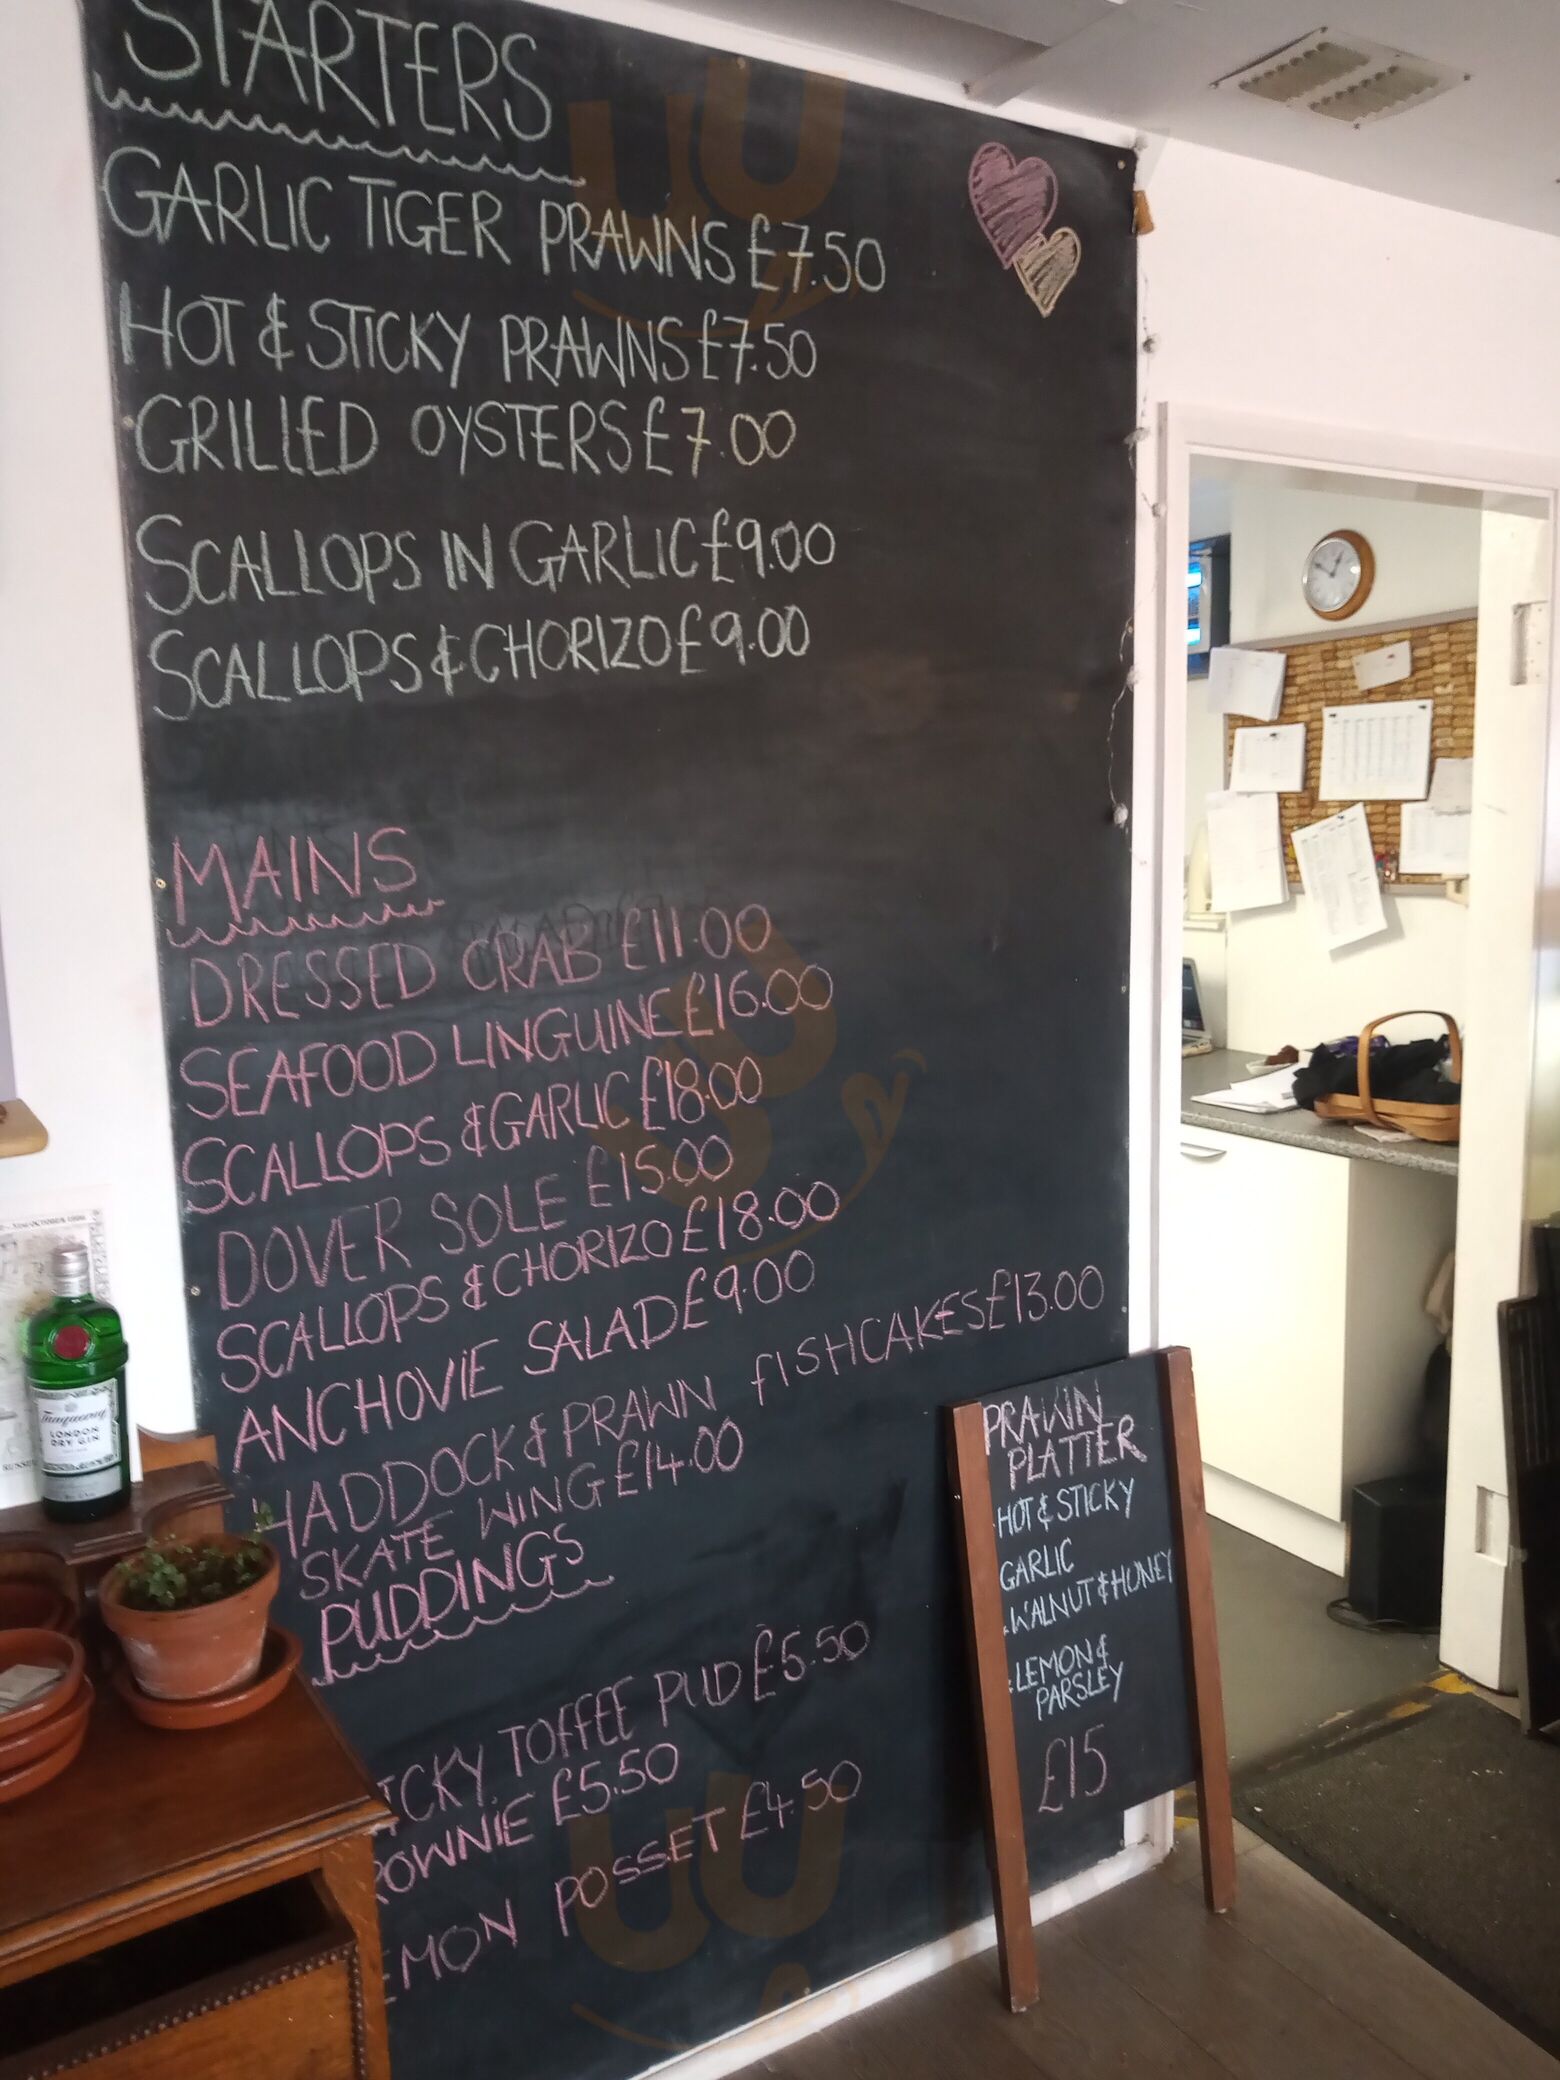 STARTERS
GARLIC TIGER PRAWNS £7.50
HOT & STICKY PRAWNS £7.50
GRILLED OYSTERS £7.00
SCALLOPS IN GARLIC £9.00
SCALLOPS & CHORIZO £9.00
MAINS
DRESSED CRAB £11.00
SEAFOOD LINGUINE £16.00
SCALLOPS & GARLIC £18.00
DOVER SOLE £15.00
SCALLOPS & CHORIZO £18.00
ANCHOVIE SALAD £9.00
HADDOCK & PRAWN FISHCAKES £13.00
SKATE WING £14.00
PUDDINGS
ICKY TOFFEE PUD £5.50
ROWNIE £5.50
EMON POSSET £4.50
PRAWN
PLATTER
HOT & STICKY
GARLIC
WALNUT & HONEY
LEMON &
PARSLEY
£15
Tanqueray
LONDON
DRY GIN